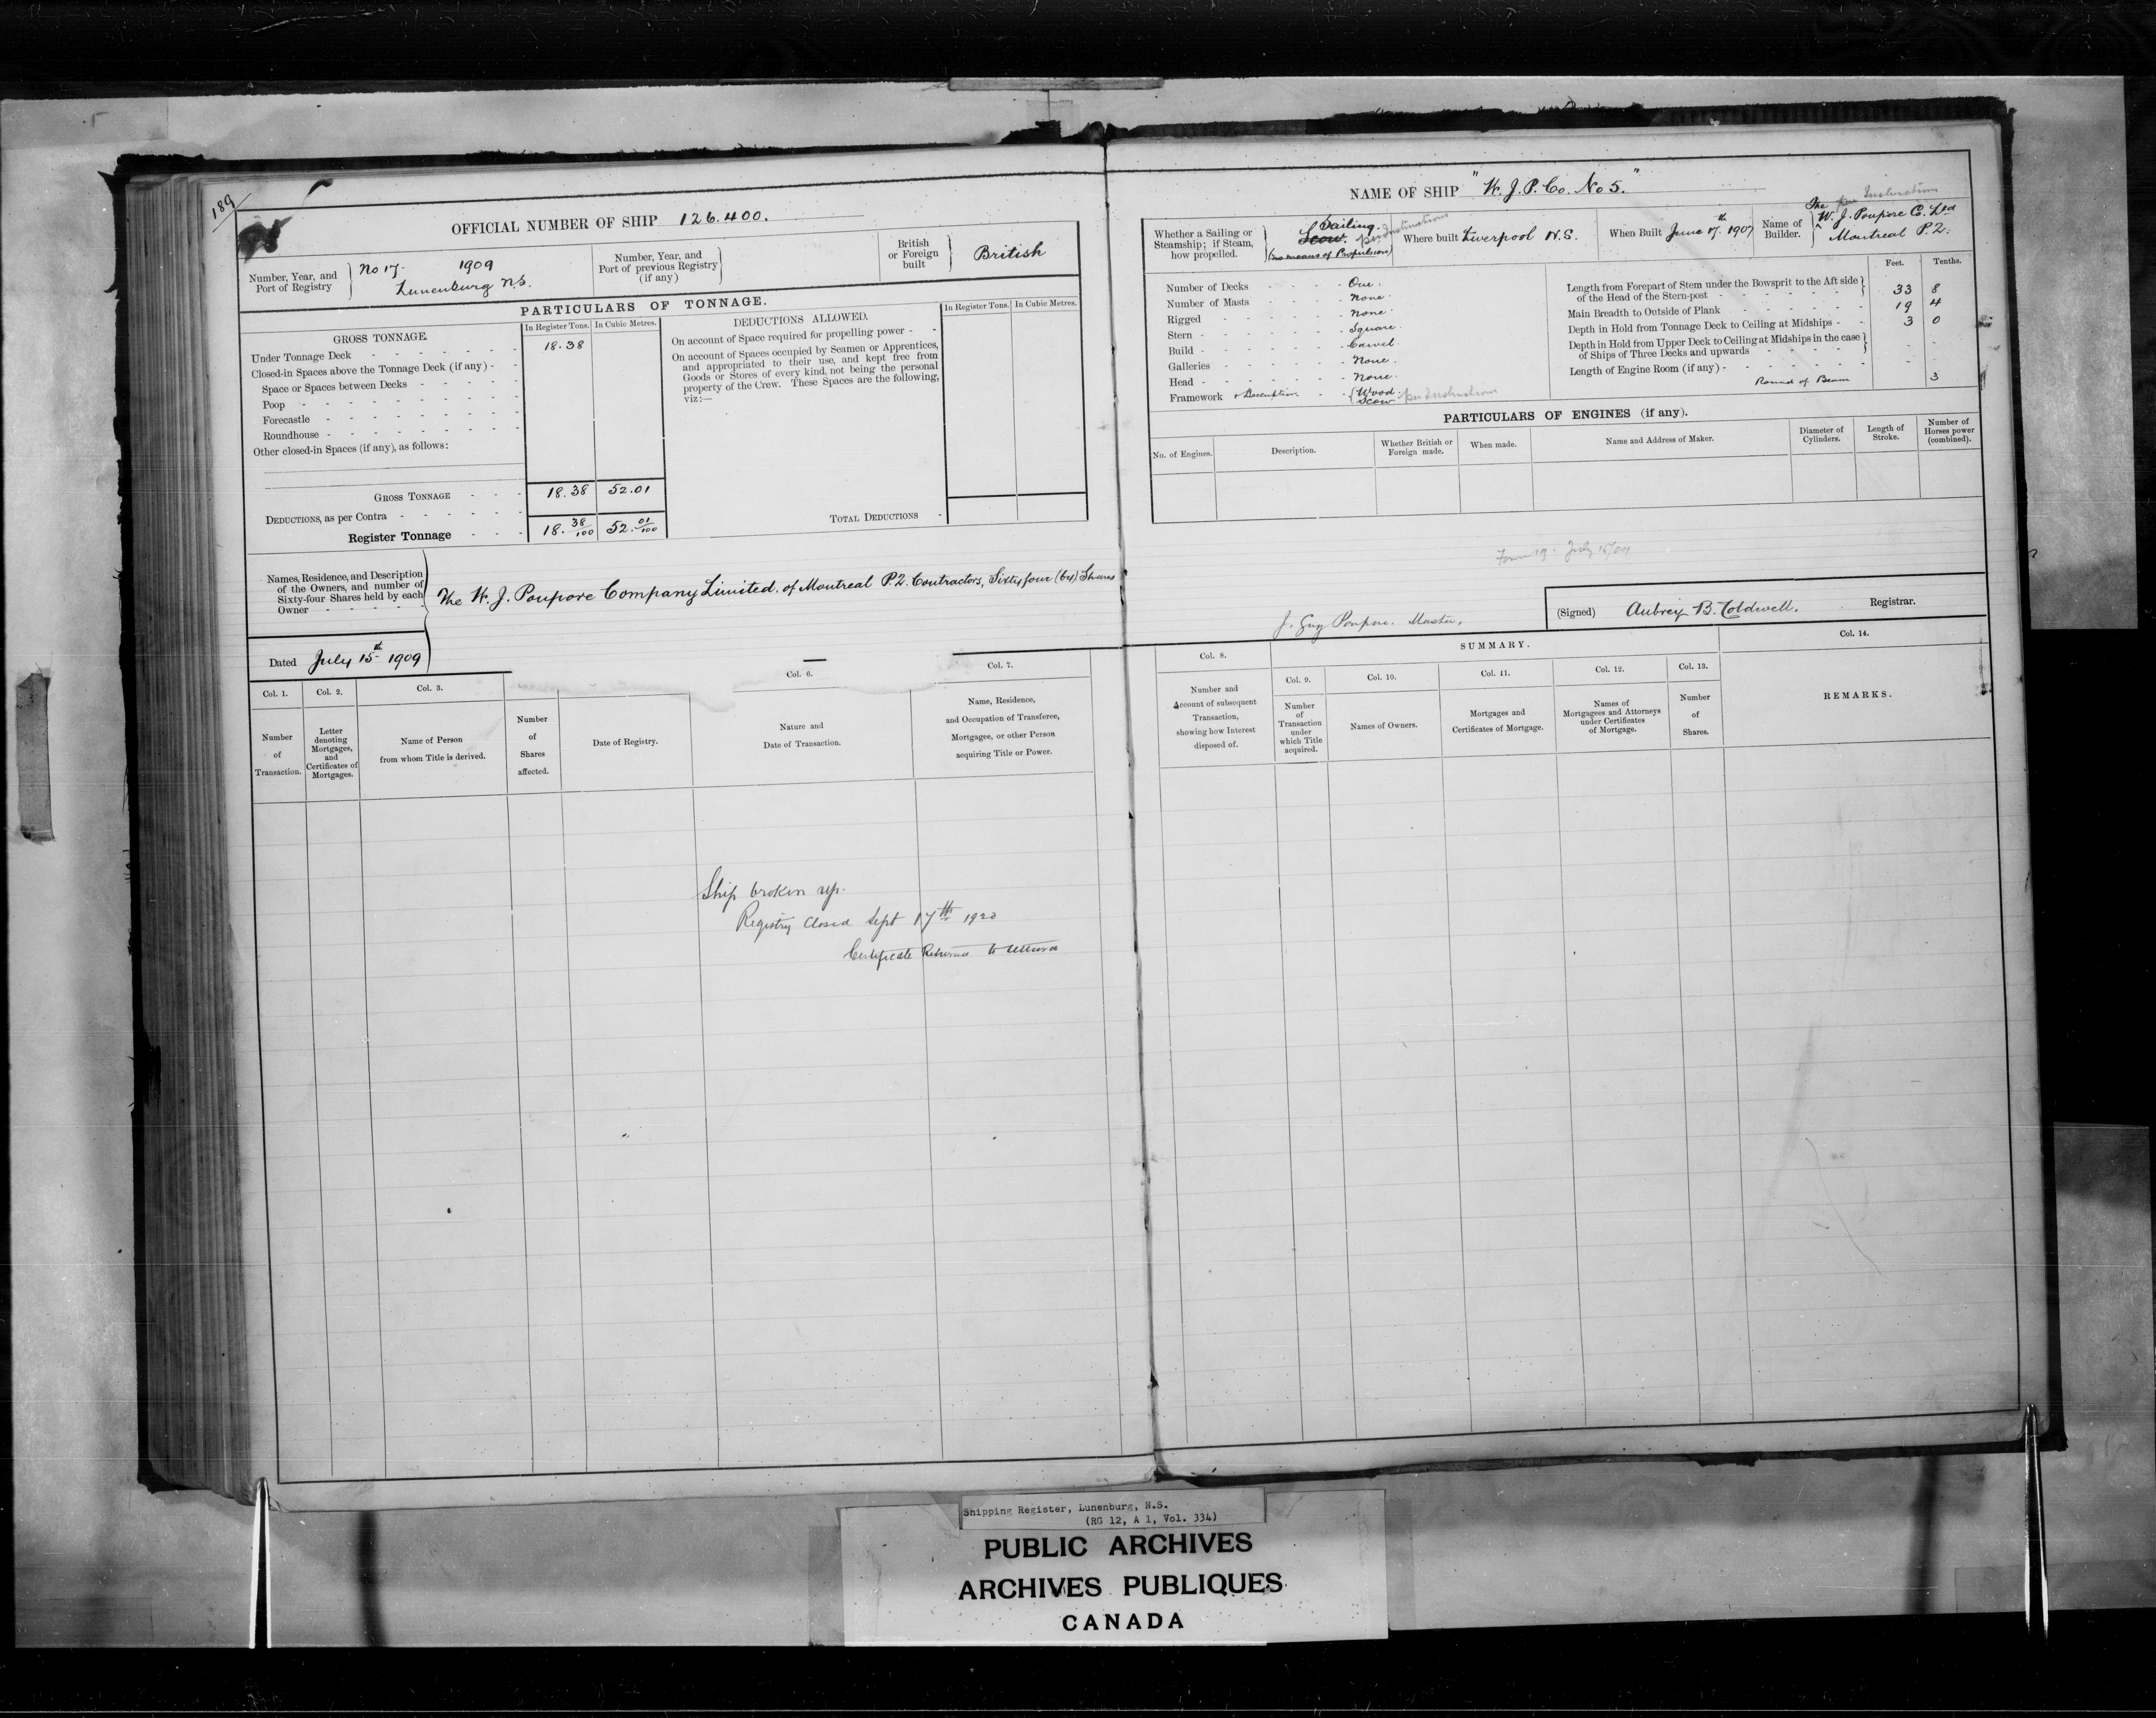 189
OFFICIAL NUMBER OF SHIP 126.400.
Number, Year, and Port of Registry } No 17. 1909 Lunenburg N.S.
Number, Year, and Port of previous Registry (if any) }
British or Foreign built } British
PARTICULARS OF TONNAGE.
GROSS TONNAGE.
In Register Tons. In Cubic Metres.
DEDUCTIONS ALLOWED.
In Register Tons. In Cubic Metres.
Under Tonnage Deck 18.38
Closed-in Spaces above the Tonnage Deck (if any)
Space or Spaces between Decks
Poop
Forecastle
Roundhouse
Other closed-in Spaces (if any), as follows:
On account of Space required for propelling power
On account of Spaces occupied by Seamen or Apprentices,
and appropriated to their use, and kept free from
Goods or Stores of every kind, not being the personal
property of the Crew. These Spaces are the following,
viz:—
GROSS TONNAGE 18.38 52.01
DEDUCTIONS, as per Contra
TOTAL DEDUCTIONS
Register Tonnage 18.38/100 52.01/100
Names, Residence, and Description
of the Owners, and number of
Sixty-four Shares held by each
Owner
The W. J. Poupore Company Limited. of Montreal P.Q. Contractors, Sixty four (64) Shares
Dated July 15th 1909
Col. 1.
Number of Transaction.
Col. 2.
Letter denoting Mortgages, and Certificates of Mortgages.
Col. 3.
Name of Person from whom Title is derived.
Number of Shares affected.
Date of Registry.
Col. 6.
Nature and Date of Transaction.
Col. 7.
Name, Residence, and Occupation of Transferee, Mortgagee, or other Person acquiring Title or Power.
Ship broken up.
Registry Closed Sept 17th 1920
Certificate Returned
NAME OF SHIP "W. J. P. Co. No 5."
Whether a Sailing or Steamship; if Steam, how propelled. } Sailing. Scow. per Instructions (no means of Propulsion)
Where built Liverpool N.S.
When Built June 17th 1907
Name of Builder. { The W. J. Poupore Co. Ltd Montreal P.Q. per Instructions
Number of Decks One.
Number of Masts None.
Rigged None.
Stern Square.
Build Carvel.
Galleries None.
Head None.
Framework & Description { Wood Scow per Instructions
Feet. Tenths.
Length from Forepart of Stem under the Bowsprit to the Aft side of the Head of the Stern-post 33 8
Main Breadth to Outside of Plank 19 4
Depth in Hold from Tonnage Deck to Ceiling at Midships 3 0
Depth in Hold from Upper Deck to Ceiling at Midships in the case of Ships of Three Decks and upwards
Length of Engine Room (if any)
Round of Beam 3
PARTICULARS OF ENGINES (if any).
No. of Engines.
Description.
Whether British or Foreign made.
When made.
Name and Address of Maker.
Diameter of Cylinders.
Length of Stroke.
Number of Horses power (combined).
Form 19. July 15/09
J. Guy Poupore. Master.
(Signed) Aubrey B. Coldwell. Registrar.
SUMMARY.
Col. 8.
Number and Account of subsequent Transaction, showing how Interest disposed of.
Col. 9.
Number of Transaction under which Title acquired.
Col. 10.
Names of Owners.
Col. 11.
Mortgages and Certificates of Mortgage.
Col. 12.
Names of Mortgagees and Attorneys under Certificates of Mortgage.
Col. 13.
Number of Shares.
Col. 14.
REMARKS.
Shipping Register, Lunenburg, N.S.
(RG 12, A 1, Vol. 334)
PUBLIC ARCHIVES
ARCHIVES PUBLIQUES
CANADA